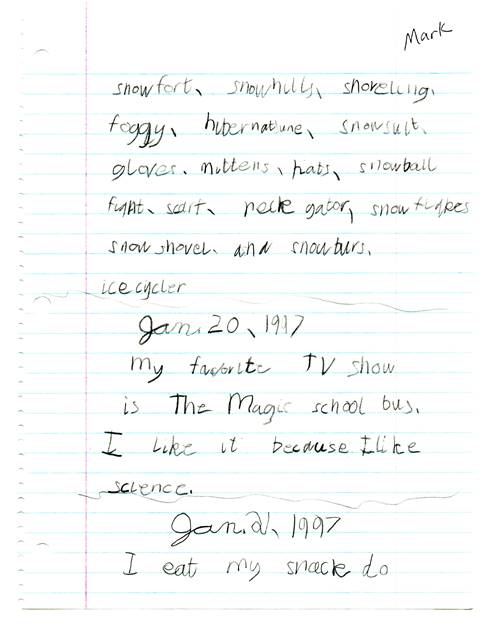 Mark
snowfort, snowhills, shoveling,
foggy, hibernatune, snowsuit,
gloves, mittens, hats, snowball
fight, scarf, neck gator, snowflakes
snow shovel, and snowburs.
ice cycler
Jan. 20, 1997
my favorite TV show
is The Magic school bus.
I like it because I like
science.
Jan. 21, 1997
I eat my snack do